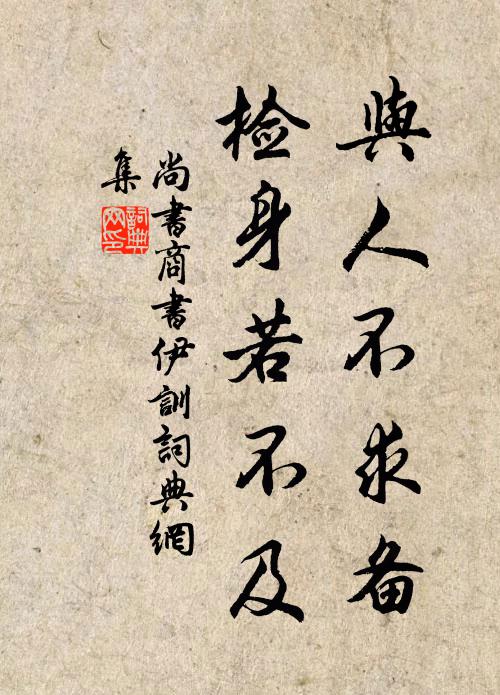 與人不求备
检身若不及
尚書商書伊訓詞典網
集
詞典
网印